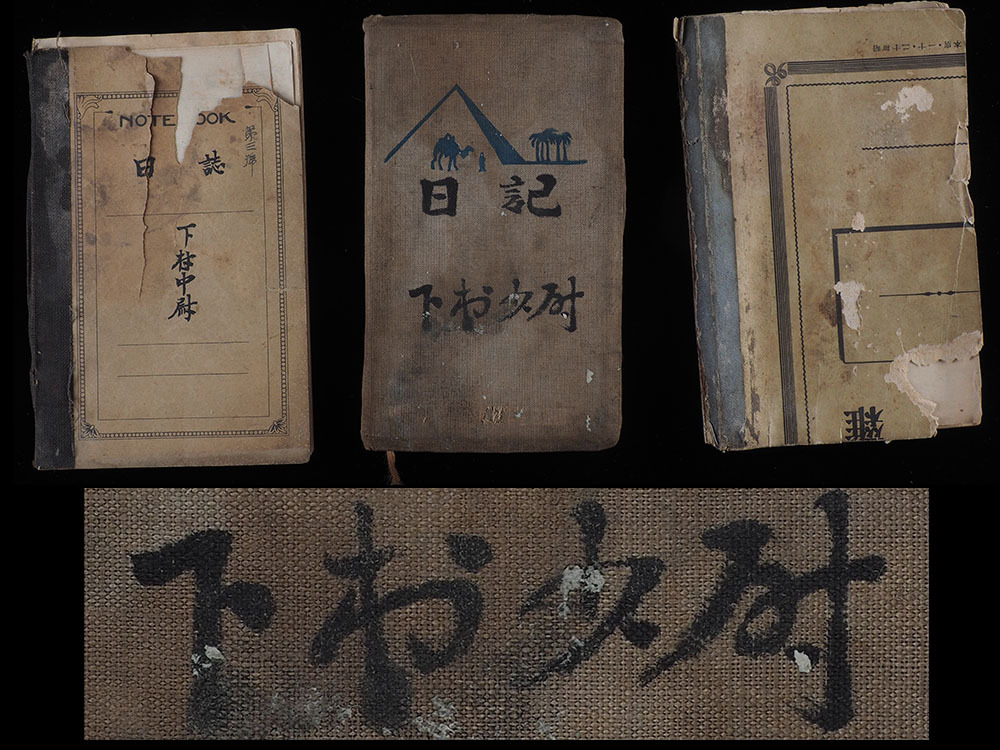 NOTE OOK
日誌
第三
下村中尉
日記
下村少尉
雜
下村少尉